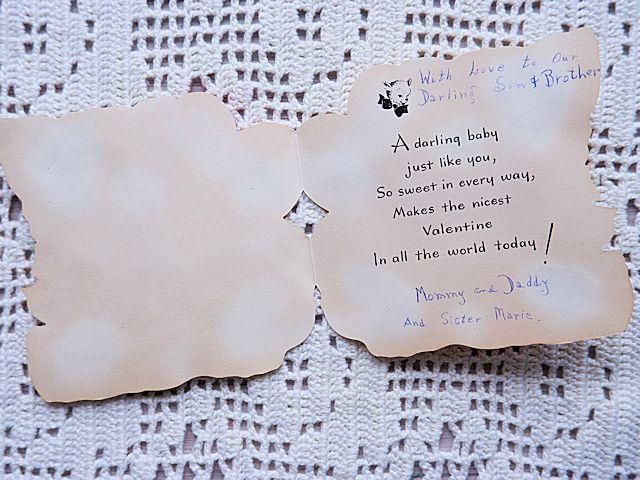 With Love to Our
Darling Son & Brother
A darling baby
just like you,
So sweet in every way,
Makes the nicest
Valentine
In all the world today!
Mommy and Daddy
And Sister Marie.